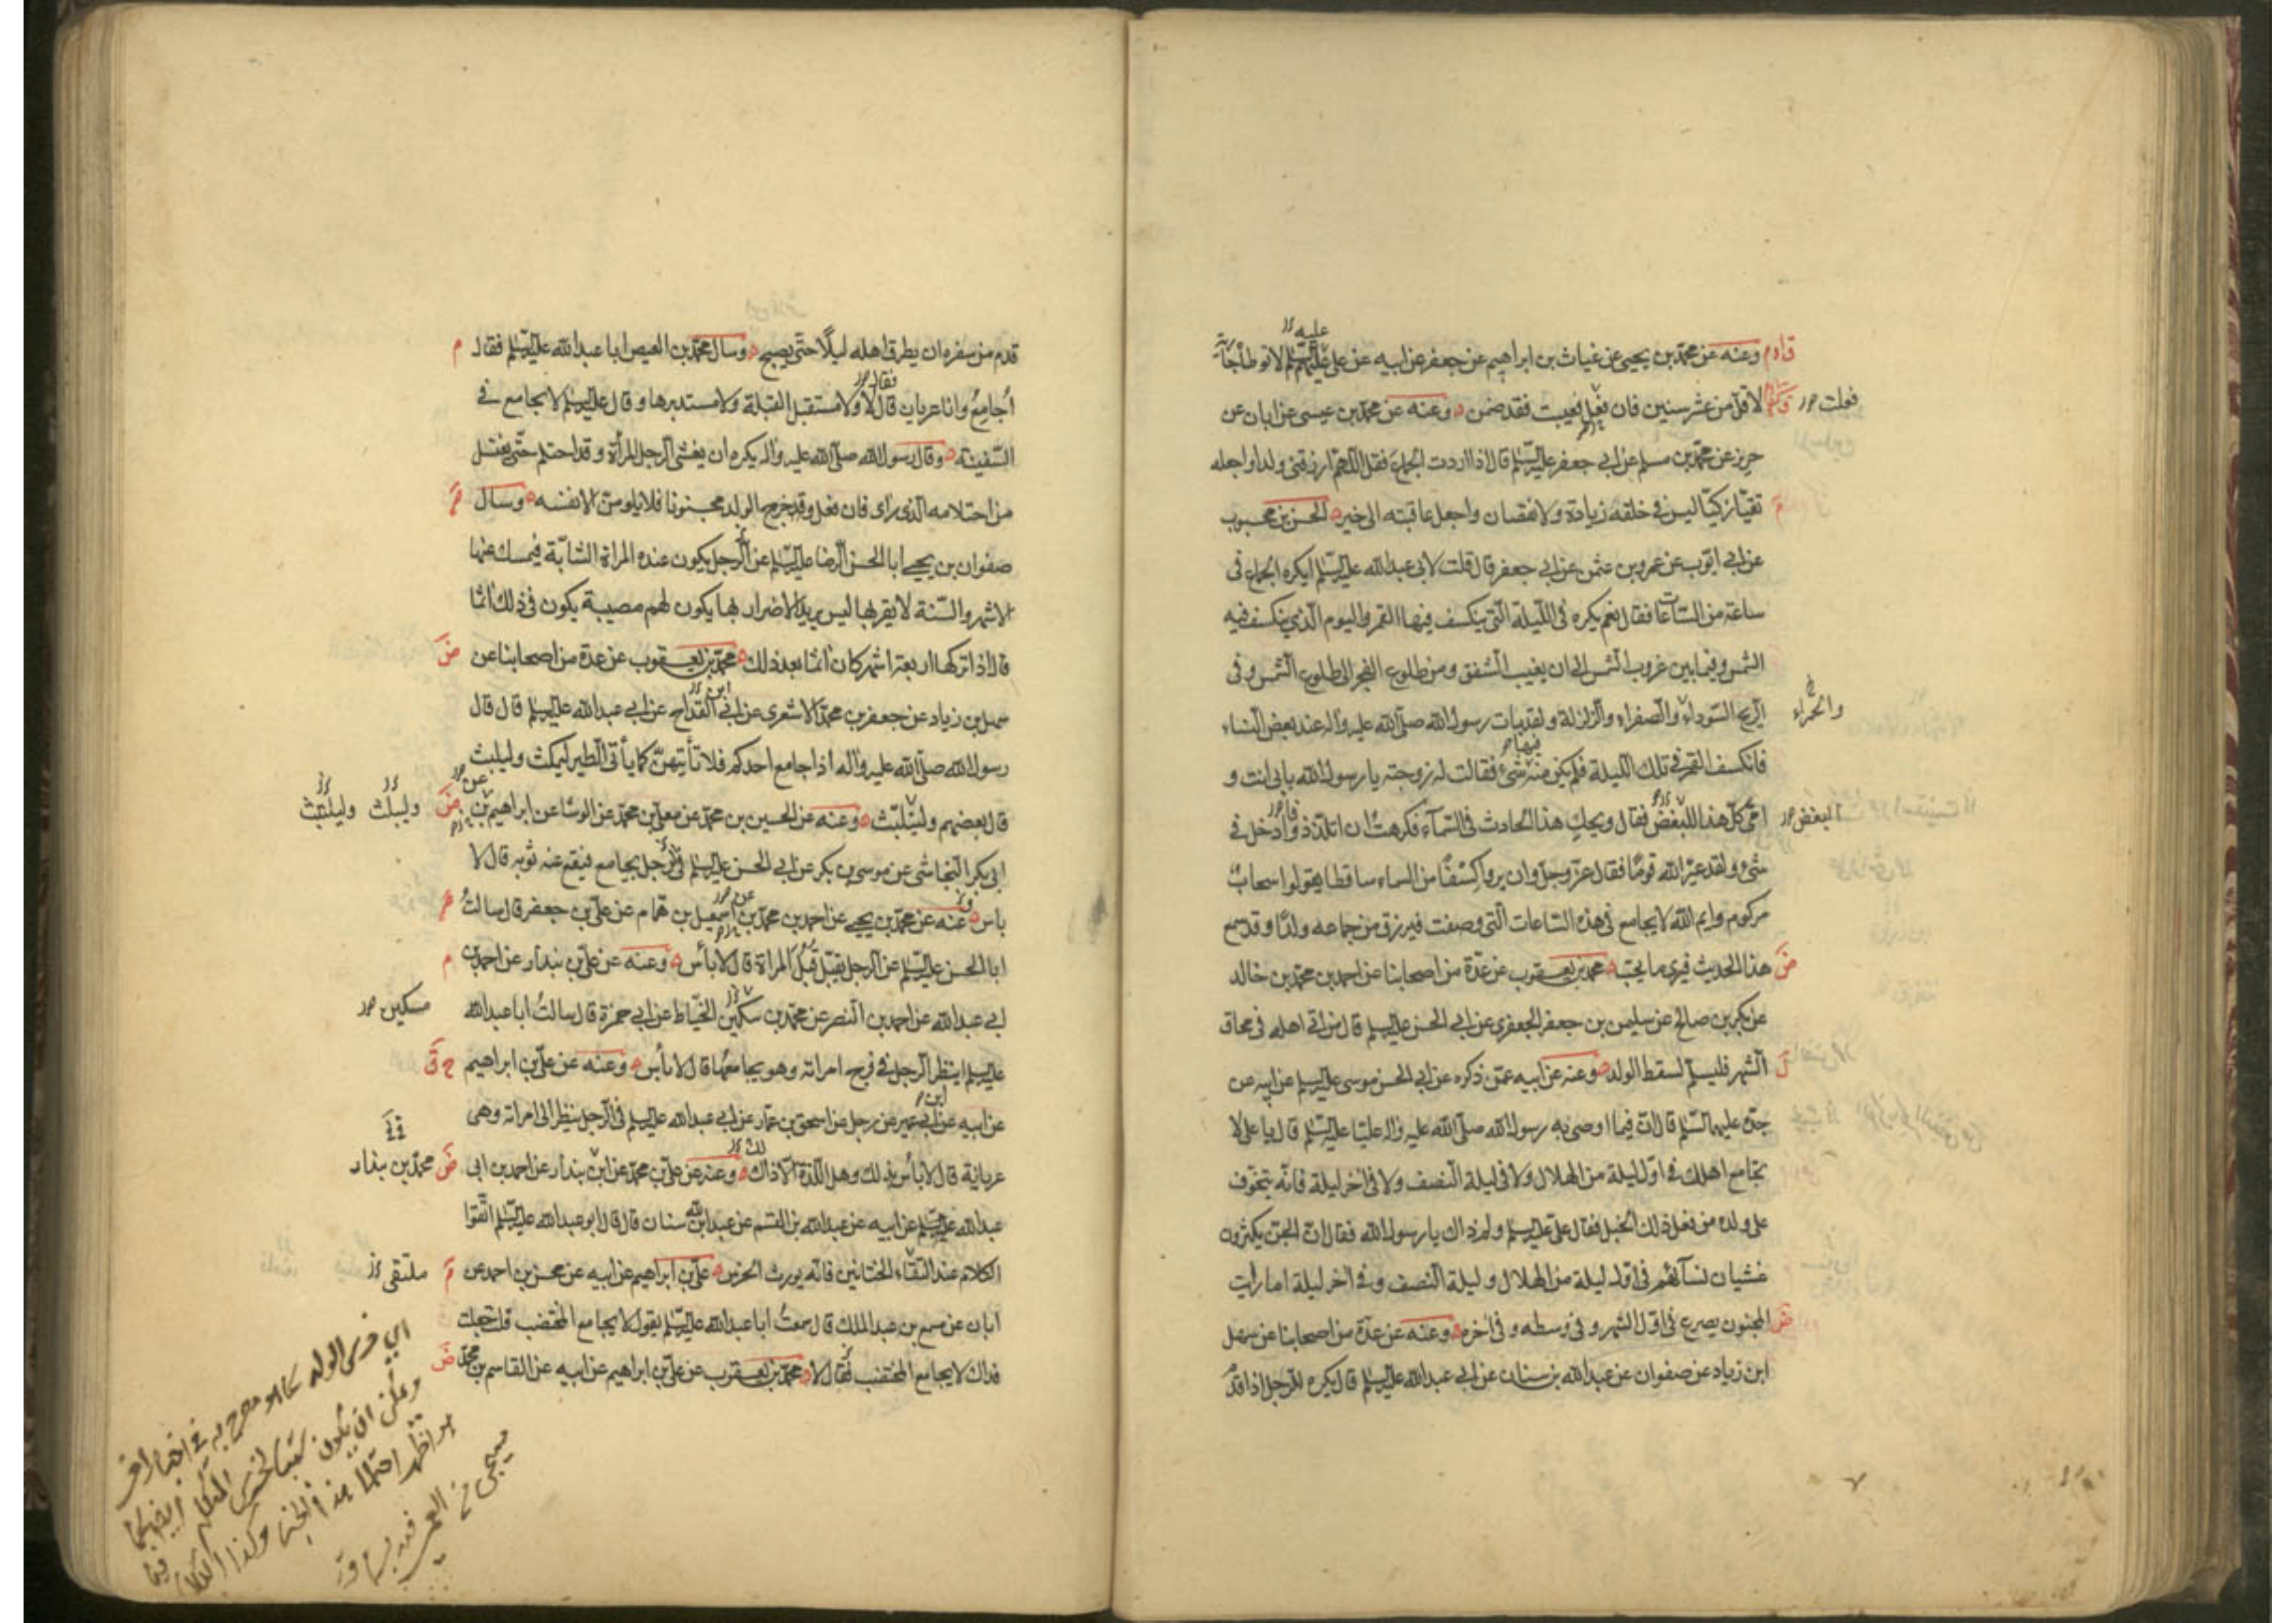 وعنه عن محمد بن يحيى عن غياث بن ابراهيم عن جعفر عن ابيه عن علي عليهم السلم لا توطأ جارية
عليه
لاقل من عشر سنين فان فعل فعيبت فقد ضمن وعنه عن محمد بن عيسى عن ابان عن
فعلت
حريز عن محمد بن مسلم عن ابي جعفر عليه السلم قال اذا اردت الجماع فقل اللهم ارزقني ولدا واجعله
تقيا زكيا ليس في خلقه زيادة ولا نقصان واجعل عاقبته الى خير الحسن بن محبوب
عن ابي ايوب عن عمرو بن عثمن عن ابي جعفر قال قلت لابي عبد الله عليه السلم ايكره الجماع في
ساعة من الساعات فقال نعم يكره في الليلة التي ينكسف فيها القمر واليوم الذي ينكسف فيه
الشمس وفيما بين غروب الشمس الى ان يغيب الشفق ومن طلوع الفجر الى طلوع الشمس وفي
الريح السوداء والصفراء والزلزلة ولقد بات رسول الله صلى الله عليه واله عند بعض النساء
والحمراء
فانكسف القمر في تلك الليلة فلم يكن منه شئ فقالت له زوجته يا رسول الله بابي انت و
فيها
امي كل هذا للبغض فقال ويحك هذا الحادث في السماء فكرهت ان اتلذذ وادخل في
البغض
شئ ولقد عير الله قوما فقال عز وجل وان يروا كسفا من السماء ساقطا يقولوا سحاب
مركوم وايم الله لا يجامع في هذه الساعات التي وصفت فيرزق من جماعه ولدا وقد سمع
هذا الحديث فيرى ما يحبه محمد بن يعقوب عن عدة من اصحابنا عن احمد بن محمد بن خالد
عن بكر بن صالح عن سليمن بن جعفر الجعفري عن ابي الحسن عليه السلم قال من اتى اهله في محاق
الشهر فليسلم لسقط الولد وعنه عن ابيه عمن ذكره عن ابي الحسن موسى عليه السلم عن ابيه عن
جده عليهم السلم قال ان فيما اوصى به رسول الله صلى الله عليه واله عليا عليه السلم قال يا علي لا
تجامع اهلك في اول ليلة من الهلال ولا في ليلة النصف ولا في اخر ليلة فانه يتخوف
على ولده من فعل ذلك الخبل فقال علي عليه السلم ولم ذاك يا رسول الله فقال ان الجن يكثرون
غشيان نسائهم في اول ليلة من الهلال وليلة النصف وفي اخر ليلة اما رايت
المجنون يصرع في اول الشهر وفي وسطه وفي اخره وعنه عن عدة من اصحابنا عن سهل
ابن زياد عن صفوان عن عبد الله بن سنان عن ابي عبد الله عليه السلم قال يكره للرجل اذا قدم
قدم من سفره ان يطرق اهله ليلا حتى يصبح وسال محمد بن العيص ابا عبد الله عليه السلم فقال
اجامع وانا عريان قال لا ولا مستقبل القبلة ولا مستدبرها وقال عليه السلم لا تجامع في
فقال
السفينة وقال رسول الله صلى الله عليه واله يكره ان يغشى الرجل المرأة وقد احتلم حتى يغتسل
من احتلامه الذي راى فان فعل وقد خرج الولد مجنونا فلا يلومن الا نفسه وسال
صفوان بن يحيى ابا الحسن الرضا عليه السلم عن الرجل يكون عنده المراة الشابة فيمسك عنها
الاشهر والسنة لا يقربها ليس يريد الاضرار بها يكون لهم مصيبة يكون في ذلك اثما
قال اذا تركها اربعة اشهر كان اثما بعد ذلك محمد بن يعقوب عن عدة من اصحابنا عن
سهل بن زياد عن جعفر بن محمد الاشعري عن ابي القداح عن ابي عبد الله عليه السلم قال قال
ابن
رسول الله صلى الله عليه واله اذا جامع احدكم فلا تأتيهن كما يأتي الطير ليمكث وليلبث
قال بعضهم وليتلبث وعنه عن الحسين بن محمد عن معلى بن محمد عن الوشا عن ابراهيم بن
عن
وليبلث وليلتبث
ابي بكر النجاشي عن موسى بن بكر عن ابي الحسن عليه السلم في الرجل يجامع فيقع عنه ثوبه قال لا
باس وعنه عن محمد بن يحيى عن احمد بن محمد بن اسمعيل بن همام عن علي بن جعفر قال سالت
عن
ابا الحسن عليه السلم عن الرجل يقبل قبل المراة قال لا بأس وعنه عن علي بن بندار عن احمد بن
ابي عبد الله عن احمد بن النضر عن محمد بن سكين الخياط عن ابي حمزة قال سالت ابا عبد الله
مسكين
عليه السلم اينظر الرجل في فرج امراته وهو يجامعها قال لا بأس وعنه عن علي بن ابراهيم
عن ابيه عن ابي عمير عن رجل عن اسحق بن عمار عن ابي عبد الله عليه السلم في الرجل ينظر الى امراته وهي
ابن
عريانة قال لا بأس بذلك وهل اللذة الا ذاك وعنه عن علي بن محمد عن ابن بندار عن احمد بن ابي
محمد بن بندار
عبد الله عليه السلم عن ابيه عن عبد الله بن القسم عن عبد الله بن سنان قال قال ابو عبد الله عليه السلم اتقوا
الكلام عند التقاء الختانين فانه يورث الخرس علي بن ابراهيم عن ابيه عن محسن بن احمد عن
ملتقى
ابان عن مسمع بن عبد الملك قال سمعت ابا عبد الله عليه السلم يقول لا يجامع المختضب قلت جعلت
فداك لا يجامع المختضب فقال لا محمد بن يعقوب عن علي بن ابراهيم عن ابيه عن القاسم بن محمد
اي خرس الولد كما هو مصرح به في اخبار اخر